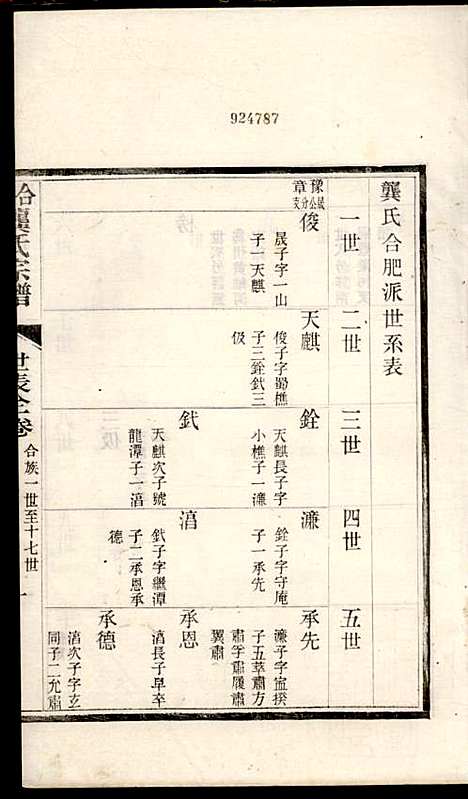 924787
龔氏合肥派世系表
一世
二世
三世
四世
五世
豫章
晟公分支
俊
晟子字一山
子一天麒
天麒
俊子字蜀樵
子三銓鉽三
伋
銓
天麒長子字
小樵子一濂
鉽
天麒次子號
龍潭子一湻
濂
銓子字守庵
子一承先
湻
鉽子字繼潭
子二承恩承
德
承先
子五萃肅方
肅孚肅履肅
翼肅
承恩
湻長子早卒
承德
湻次子字玄
同子二允肅
合龔氏宗譜
世表全卷
合族一世至十七世
一